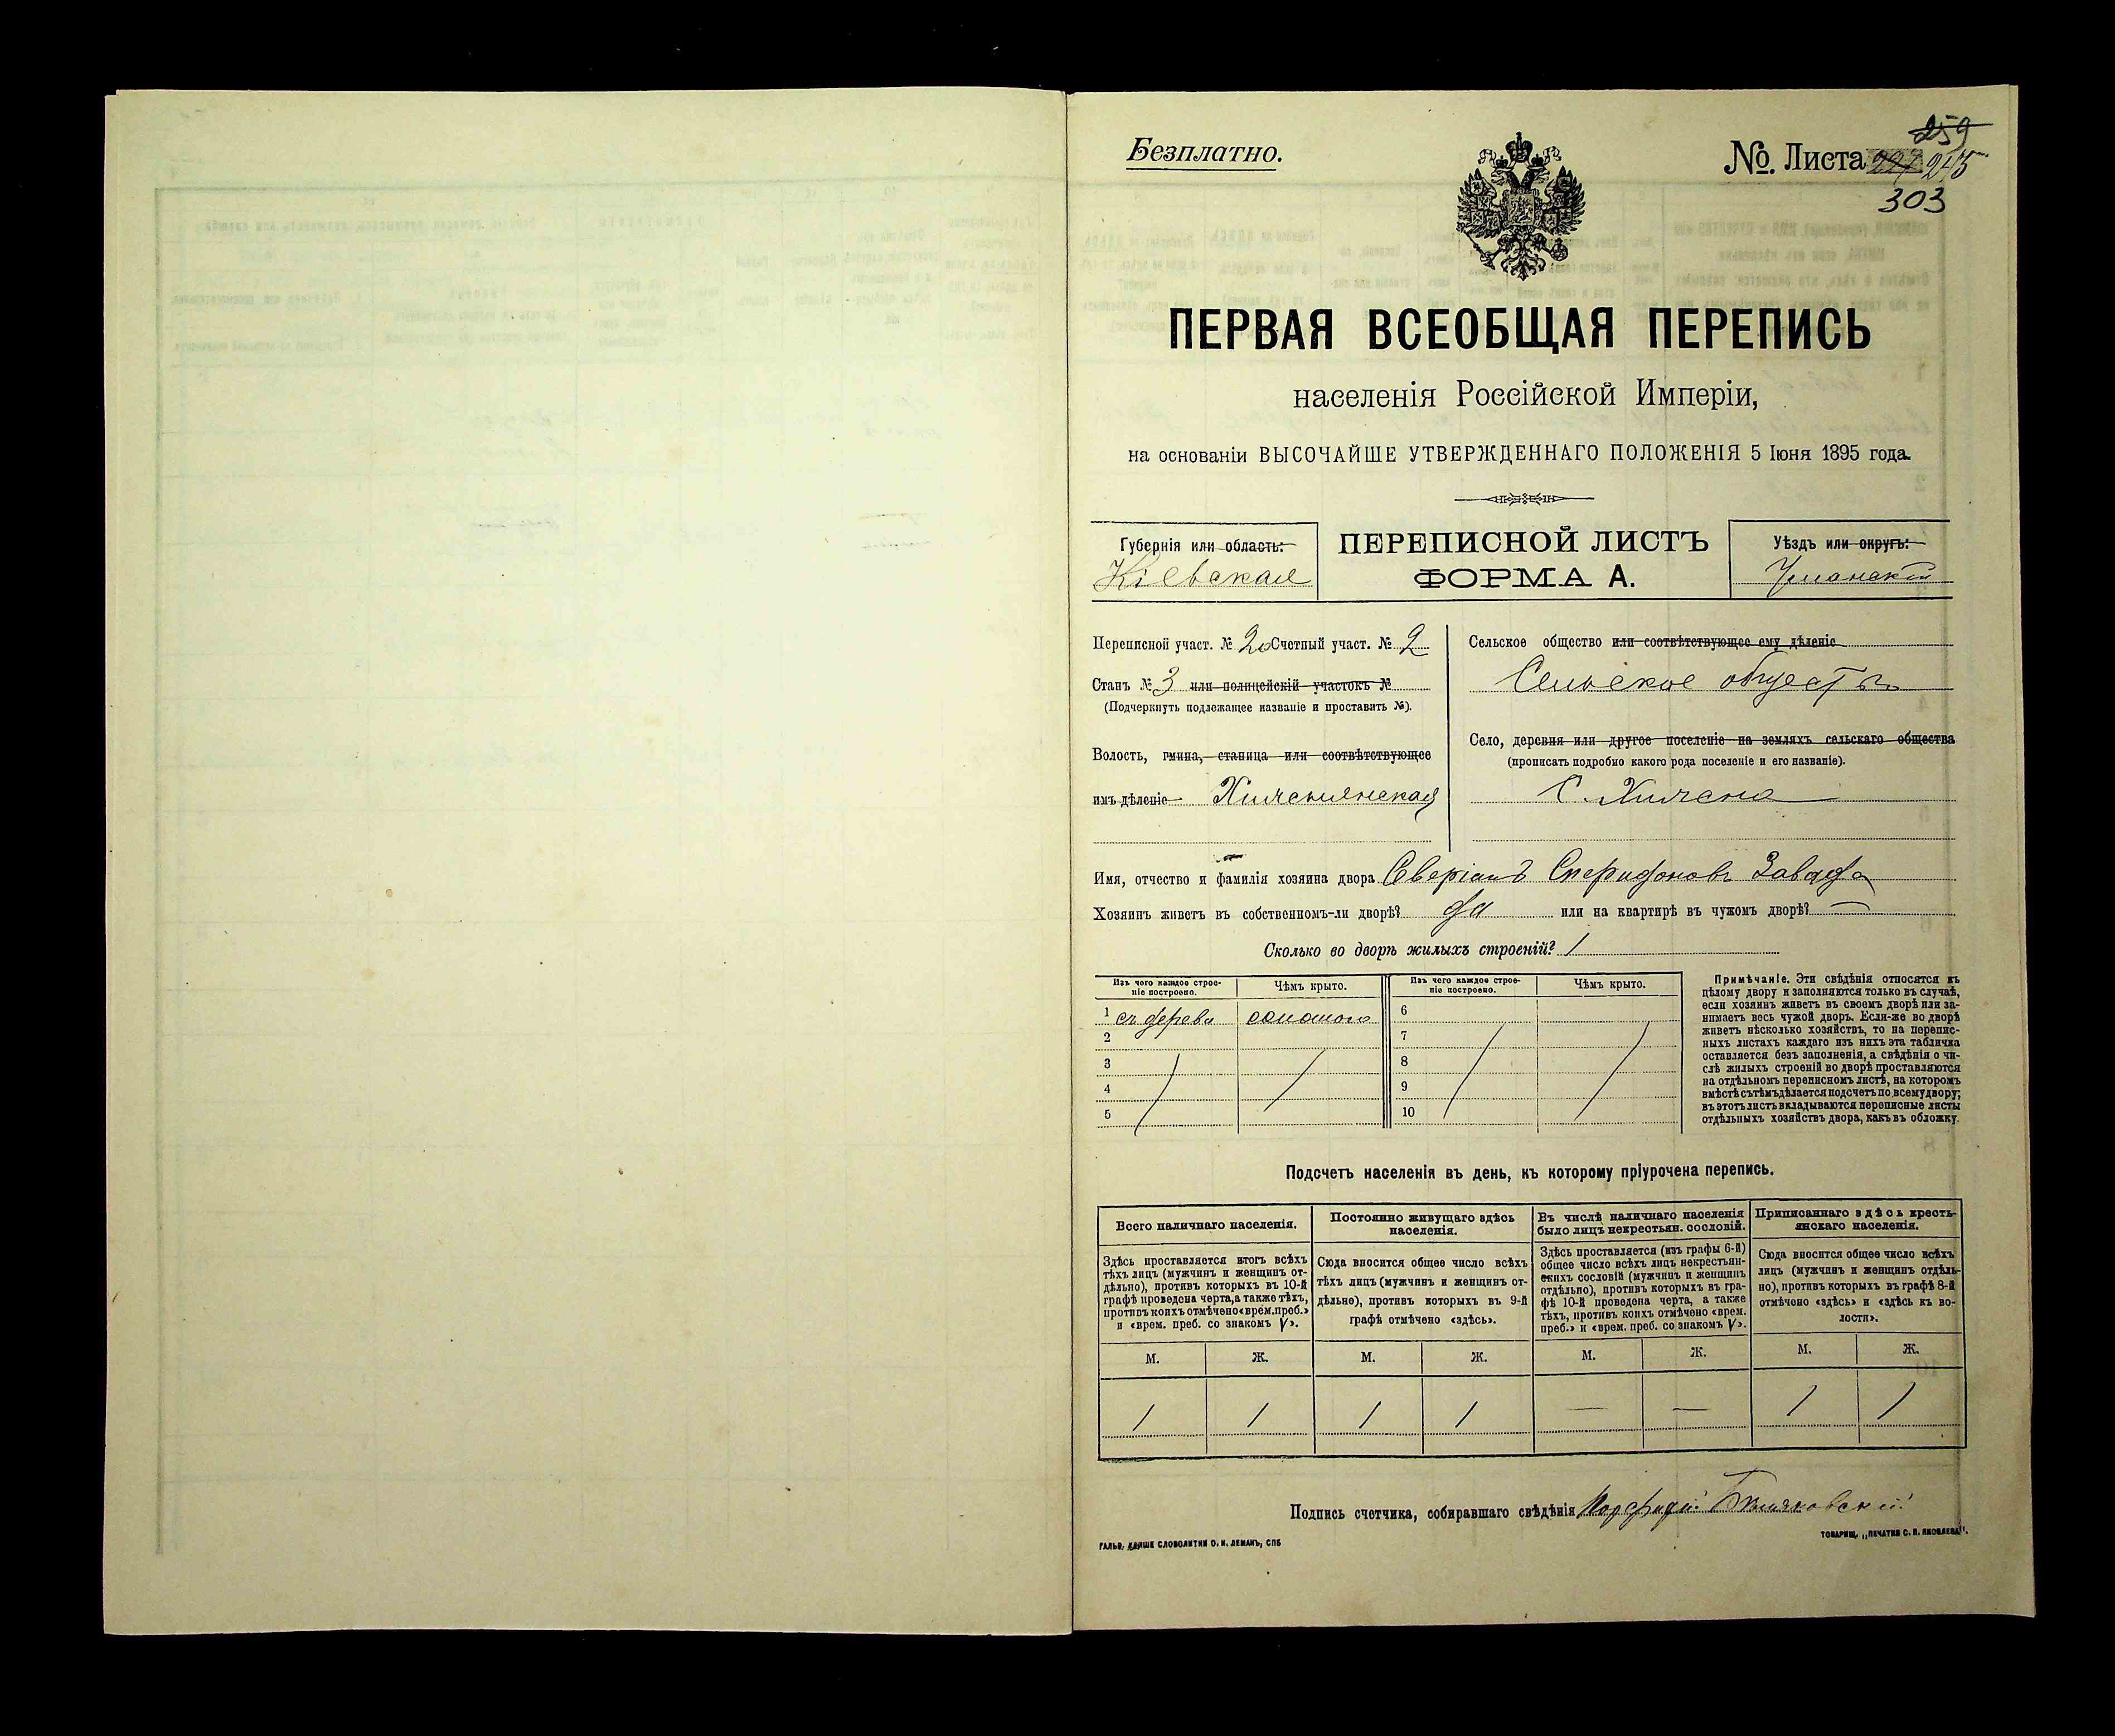 Безплатно.
259
№. Листа 227 245
303
ПЕРВАЯ ВСЕОБЩАЯ ПЕРЕПИСЬ
населенія Россійской Имперіи,
на основаніи ВЫСОЧАЙШЕ УТВЕРЖДЕННАГО ПОЛОЖЕНІЯ 5 Іюня 1895 года.
Губернія или область:
Кіевская
ПЕРЕПИСНОЙ ЛИСТЪ
ФОРМА А.
Уѣздъ или округъ:
Уманскій
Переписной участ. № 20 Счетный участ. № 2
Станъ № 3 или полицейскій участокъ №
(Подчеркнуть подлежащее названіе и проставить №).
Волость, гмина, станица или соотвѣтствующее
имъ дѣленіе
Сельское общество или соотвѣтствующее ему дѣленіе
Сельское общество
Село, деревня или другое поселеніе на земляхъ сельскаго общества
(прописать подробно какого рода поселеніе и его названіе).
С.
Имя, отчество и фамилія хозяина двора Сверіанъ Спиридоновъ Завада
Хозяинъ живетъ въ собственномъ-ли дворѣ? да или на квартирѣ въ чужомъ дворѣ? —
Сколько во дворѣ жилыхъ строеній? 1
Изъ чего каждое строе-
ніе построено.
Чѣмъ крыто.
Изъ чего каждое строе-
ніе построено.
Чѣмъ крыто.
1 съ дерева соломою
2
3
4
5
6
7
8
9
10
Примѣчаніе. Эти свѣдѣнія относятся къ
цѣлому двору и заполняются только въ случаѣ,
если хозяинъ живетъ въ своемъ дворѣ или за-
нимаетъ весь чужой дворъ. Если-же во дворѣ
живетъ нѣсколько хозяйствъ, то на перепис-
ныхъ листахъ каждаго изъ нихъ эта табличка
оставляется безъ заполненія, а свѣдѣнія о чи-
слѣ жилыхъ строеній во дворѣ проставляются
на отдѣльномъ переписномъ листѣ, на которомъ
вмѣстѣ съ тѣмъ дѣлается подсчетъ по всему двору;
въ этотъ листъ вкладываются переписные листы
отдѣльныхъ хозяйствъ двора, какъ въ обложку.
Подсчетъ населенія въ день, къ которому пріурочена перепись.
Всего наличнаго населенія.
Здѣсь проставляется итогъ всѣхъ
тѣхъ лицъ (мужчинъ и женщинъ от-
дѣльно), противъ которыхъ въ 10-й
графѣ проведена черта, а также тѣхъ,
противъ коихъ отмѣчено «врем. преб.»
и «врем. преб. со знакомъ V».
М. Ж.
1 1
Постоянно живущаго здѣсь
населенія.
Сюда вносится общее число всѣхъ
тѣхъ лицъ (мужчинъ и женщинъ от-
дѣльно), противъ которыхъ въ 9-й
графѣ отмѣчено «здѣсь».
М. Ж.
1 1
Въ числѣ наличнаго населенія
было лицъ некрестьян. сословій.
Здѣсь проставляется (изъ графы 6-й)
общее число всѣхъ лицъ некрестьян-
скихъ сословій (мужчинъ и женщинъ
отдѣльно), противъ которыхъ въ гра-
фѣ 10-й проведена черта, а также
тѣхъ, противъ коихъ отмѣчено «врем.
преб.» и «врем. преб. со знакомъ V».
М. Ж.
— —
Приписаннаго здѣсь кресть-
янскаго населенія.
Сюда вносится общее число всѣхъ
лицъ (мужчинъ и женщинъ отдѣль-
но), противъ которыхъ въ графѣ 8-й
отмѣчено «здѣсь» и «здѣсь къ во-
лости».
М. Ж.
1 1
Подпись счетчика, собиравшаго свѣдѣнія
ГАЛЬВ. КЛИШЕ СЛОВОЛИТНИ О. И. ЛЕМАНЪ, СПБ
ТОВАРИЩ. „ПЕЧАТНЯ С. П. ЯКОВЛЕВА".